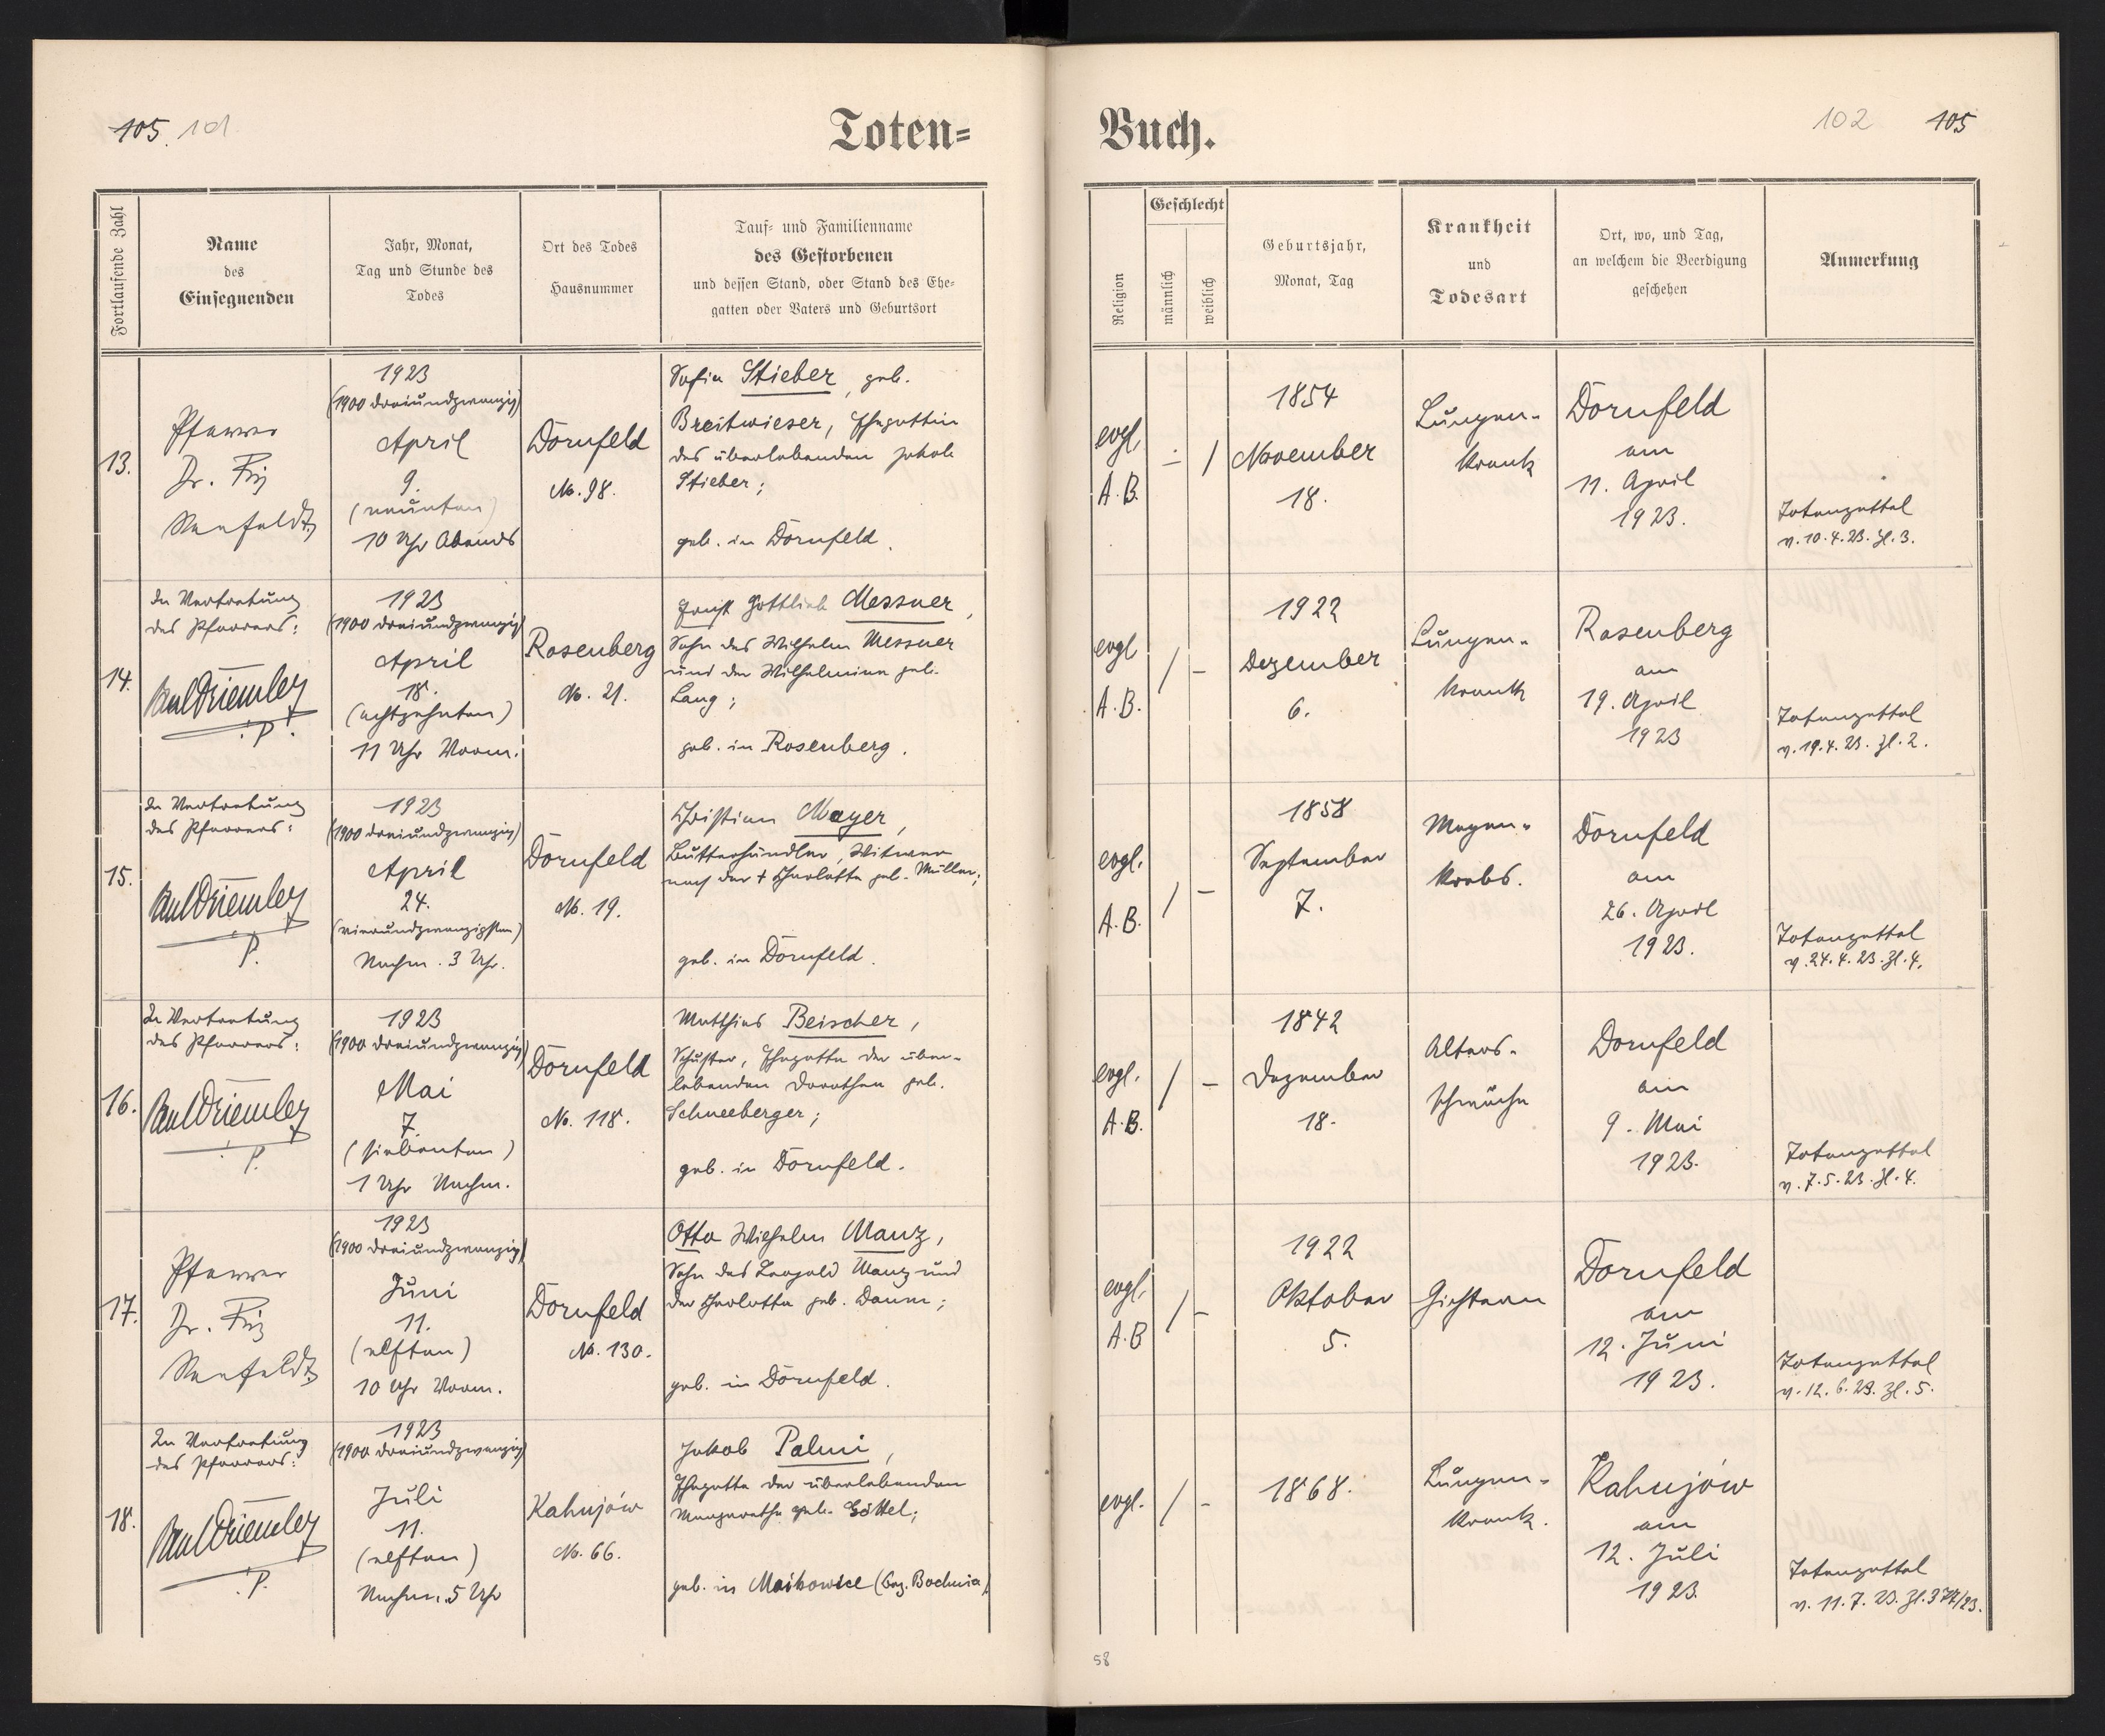 105. 101
Toten=
Fortlaufende Zahl
Name
des
Einsegnenden
Jahr, Monat,
Tag und Stunde des
Todes
Ort des Todes
Hausnummer
Tauf= und Familienname
des Gestorbenen
und dessen Stand, oder Stand des Ehe=
gatten oder Vaters und Geburtsort
13.
Pfarrer
Dr. Friz
Seefeldt
1923
(1900 dreiundzwanzig)
April
9.
(neunten)
10 Uhr Abends
Dornfeld
No. 98.
Sofia Stieber, geb.
Breitwieser, Ehegattin
des überlebenden Jakob
Stieber;
geb. in Dornfeld.
14.
In Vertretung
des Pfarrers:
P.
1923
(1900 dreiundzwanzig)
April
18.
(achtzehnten)
11 Uhr Vorm.
Rosenberg
No. 21.
Ernst Gottlieb Messner,
Sohn des Wilhelm Messner
und der Wilhelmine geb.
Lang;
geb. in Rosenberg.
15.
In Vertretung
des Pfarrers:
P.
1923
(1900 dreiundzwanzig)
April
24.
(vierundzwanzigsten)
Nachm. 3 Uhr.
Dornfeld
No. 19.
Christian Mayer,
Butterhändler, Witwer
nach der + Charlotte geb. Müller;
geb. in Dornfeld.
16.
In Vertretung
des Pfarrers:
P.
1923
(1900 dreiundzwanzig)
Mai
7.
(siebenten)
1 Uhr Nachm.
Dornfeld
No. 118.
Matthias Beischer,
Schuster, Ehegatte der über-
lebenden Dorothea geb.
Schneeberger;
geb. in Dornfeld.
17.
Pfarrer
Dr. Friz
Seefeldt
1923
(1900 dreiundzwanzig)
Juni
11.
(elften)
10 Uhr Vorm.
Dornfeld
No. 130.
Otto Wilhelm Manz,
Sohn des Leopold Manz und
der Charlotte geb. Daum;
geb. in Dornfeld.
18.
In Vertretung
des Pfarrers:
P.
1923
(1900 dreiundzwanzig)
Juli
11.
(elften)
Nachm. 5 Uhr
Kahujów
No. 66.
Jakob Palmi,
Ehegatte der überlebenden
Margarethe geb. Göttel;
geb. in (Bez. Bochnia)
Buch.
102 105
Religion
Geschlecht
männlich
weiblich
Geburtsjahr,
Monat, Tag
Krankheit
und
Todesart
Ort, wo, und Tag,
an welchem die Beerdigung
geschehen
Anmerkung
evgl.
A.B.
- /
1854
November
18.
Lungen-
krank
Dornfeld
am
11. April
1923.
Totenzettel
v. 10.4.23. Zl. 3.
evgl
A.B.
/ -
1922
Dezember
6.
Lungen-
krank
Rosenberg
am
19. April
1923
Totenzettel
v. 19.4.23. Zl. 2.
evgl.
A.B.
/ -
1858
September
7.
Magen-
krebs.
Dornfeld
am
26. April
1923.
Totenzettel
v. 24.4.23. Zl. 4.
evgl.
A.B.
/ -
1842
Dezember
18.
Alters-
schwäche
Dornfeld
am
9. Mai
1923.
Totenzettel
v. 7.5.23. Zl. 4.
evgl.
A.B
/ -
1922
Oktober
5.
Gichtern
Dornfeld
am
12. Juni
1923.
Totenzettel
v. 12.6.23. Zl. 5.
evgl.
/ -
1868.
Lungen-
krank.
Kahujów
am
12. Juli
1923.
Totenzettel
v. 11.7.23. Zl.
58